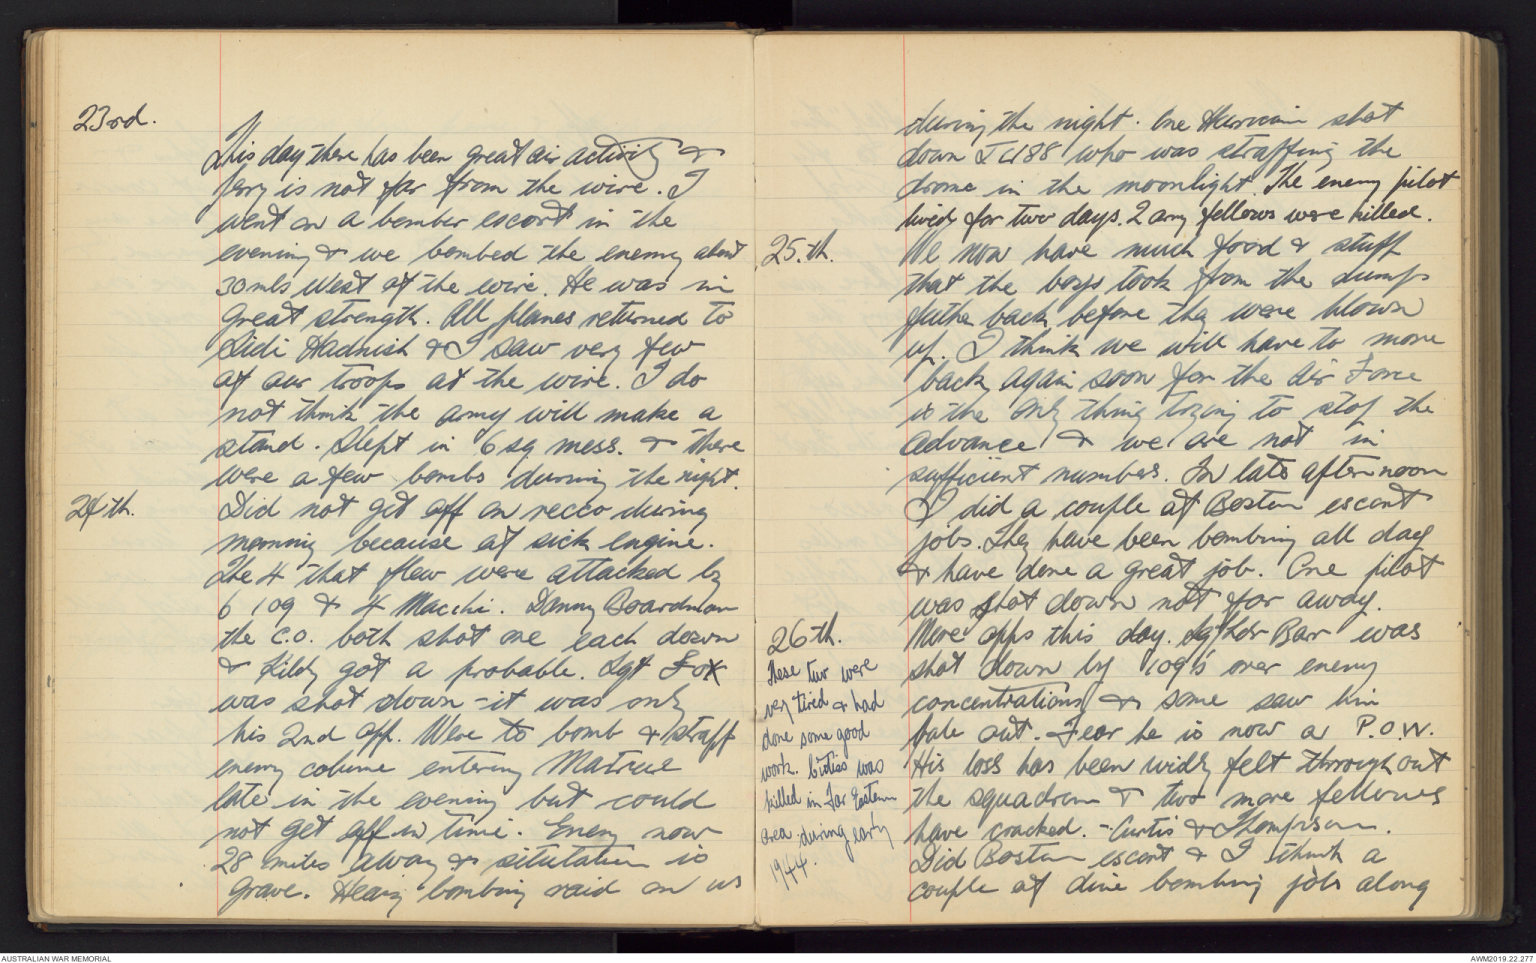 23rd.
This day there has been great air activity &
Jerry is not far from the wire. I
went on a bomber escort in the
evening & we bombed the enemy about
30 mls West of the wire. He was in
great strength. All planes returned to
Sidi Hadnish & I saw very few
of our troops at the wire. I do
not think the army will make a
stand. Slept in 6 sq mess. & there
were a few bombs during the night.
24th.
Did not get off on recco during
morning because of sick engine.
The 4 that flew were attacked by
6 109 & 4 Macchi. Danny Boardman
the C.O. both shot one each down
& Kildy got a probable. Sgt Fox
was shot down - it was only
his 2nd opp. Were to bomb & straff
enemy colume entering Matrue
late in the evening but could
not get off in time. Enemy now
28 miles away & situtation is
grave. Heavy bombing raid on us
during the night. One Hurricain shot
down JU88 who was straffing the
drome in the moonlight. The enemy pilot
lived for two days. 2 army fellows were killed.
25.th.
We now have much food & stuff
that the boys took from the dumps
futher back before they were blown
up. I think we will have to move
back again soon for the Air Force
is the only thing trying to stop the
advance & we are not in
sufficient numbers. In late afternoon
I did a couple of Boston escort
jobs. They have been bombing all day
& have done a great job. One pilot
was shot down not far away.
26th.
More opps this day. Sq Ldr Barr was
shot down by 109's over enemy
concentrations & some saw him
bale out. Fear he is now a P.O.W.
His loss has been widly felt throughout
the squadron & two more fellows
have cracked. - Curtis & Thompson.
Did Boston escort & I think a
couple of dive bombing jobs along
These two were
very tired & had
done some good
work. Curtiss was
killed in Far Eastern
area during early
1944.
AUSTRALIAN WAR MEMORIAL
AWM2019.22.277